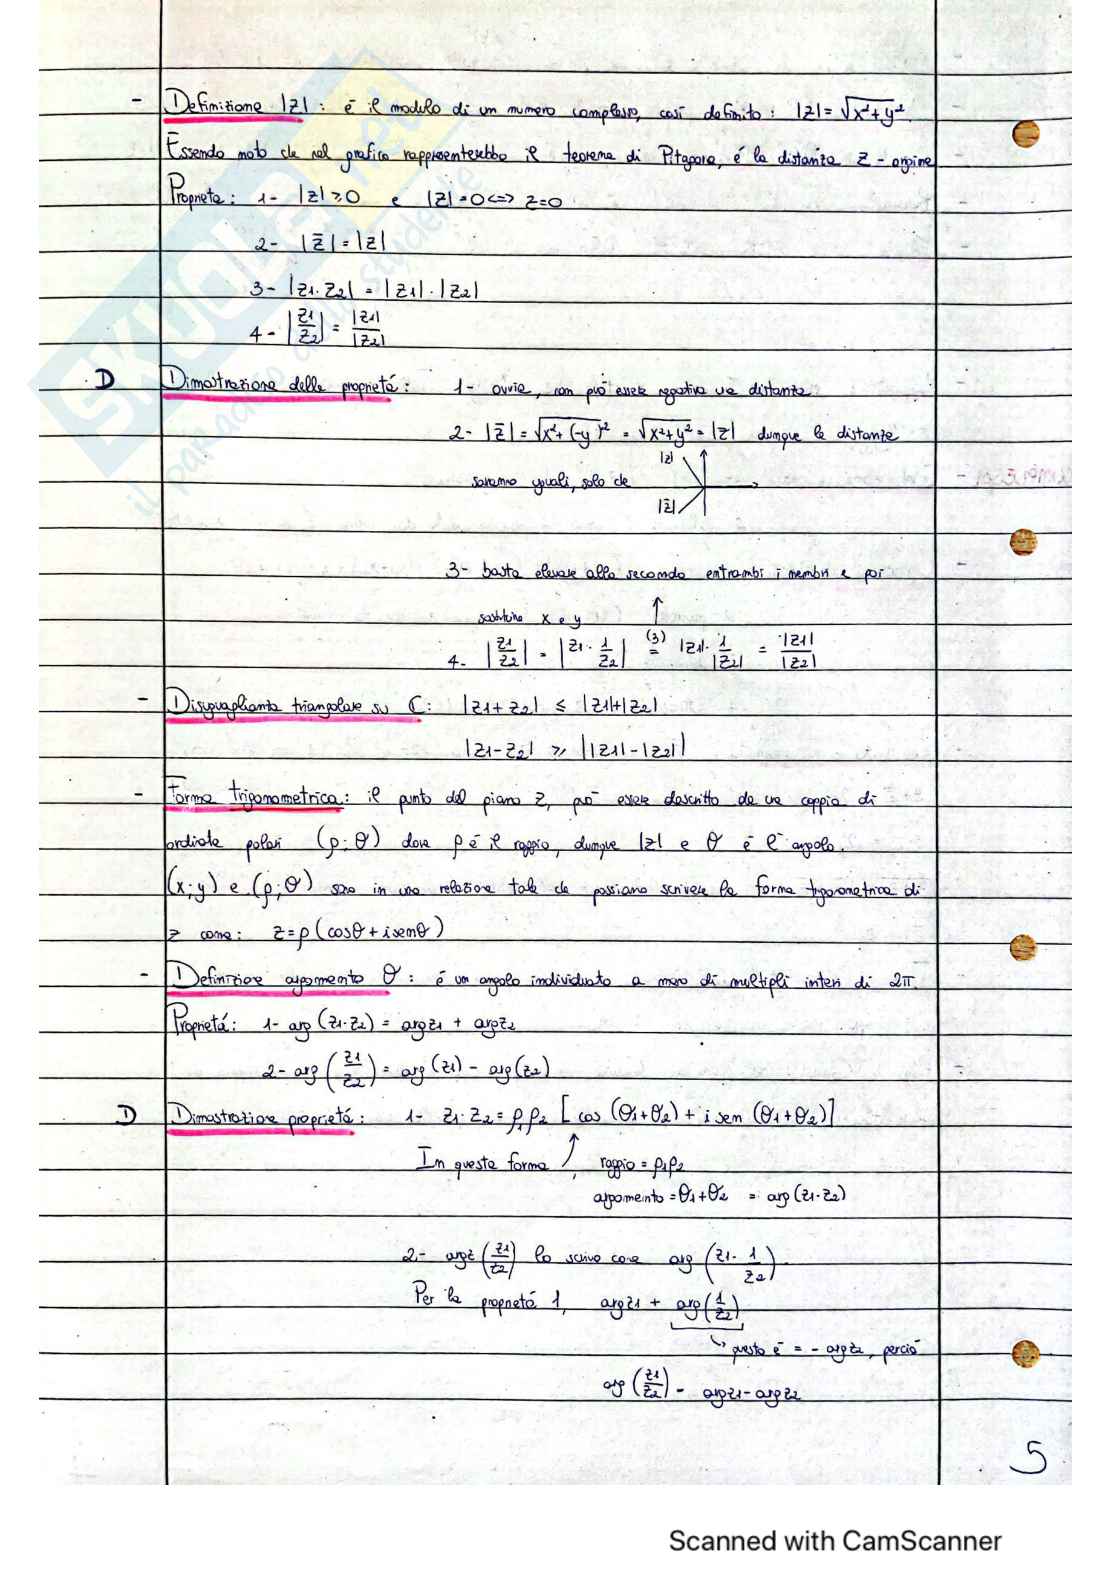 - Definizione |z| : é il modulo di un numero complesso, così definito : |z| = √x²+y².
Essendo noto che nel grafico rappresenterebbe il teorema di Pitagora, é la distanza z - origine
Proprietà : 1- |z| ⩾ 0 e |z| = 0 <=> z=0
2- |z̅| = |z|
3- |z1·z2| = |z1|·|z2|
4- |z1/z2| = |z1|/|z2|
D Dimostrazione delle proprietá : 1- ovvia, non può essere negativa una distanza
2- |z̅| = √x²+(-y)² = √x²+y² = |z| dunque le distanze
saranno uguali, solo che
|z|
|z̅|
3- basta elevare alla seconda entrambi i membri e poi
sostituire x e y
4- |z1/z2| = |z1 · 1/z2| (3)= |z1|· 1/|z2| = |z1|/|z2|
- Disuguaglianza triangolare su ℂ : |z1+z2| ⩽ |z1|+|z2|
|z1-z2| ⩾ ||z1|-|z2||
- Forma trigonometrica : il punto del piano z, può essere descritto da una coppia di
ordinate polari (ρ; θ) dove ρ é il raggio, dunque |z| e θ é l'angolo.
(x; y) e (ρ; θ) sono in una relazione tale che possiamo scrivere la forma trigonometrica di
z come : z = ρ (cosθ + i senθ)
- Definizione argomento θ : é un angolo individuato a meno di multipli interi di 2π.
Proprietá : 1- arg (z1·z2) = argz1 + argz2
2- arg (z1/z2) = arg (z1) - arg(z2)
D Dimostrazione proprietá : 1- z1·z2 = ρ1ρ2 [cos (θ1+θ2) + i sen (θ1+θ2)]
In questa forma , raggio = ρ1ρ2
argomento = θ1+θ2 = arg (z1·z2)
2- (z1/z2) lo scrivo come arg (z1 · 1/z2)
Per la proprietá 1, argz1 + arg(1/z2)
questo é = - argz2, perciò
arg (z1/z2) = argz1 - argz2
5
Scanned with CamScanner
SKUOLA.net
il paradiso dello studente